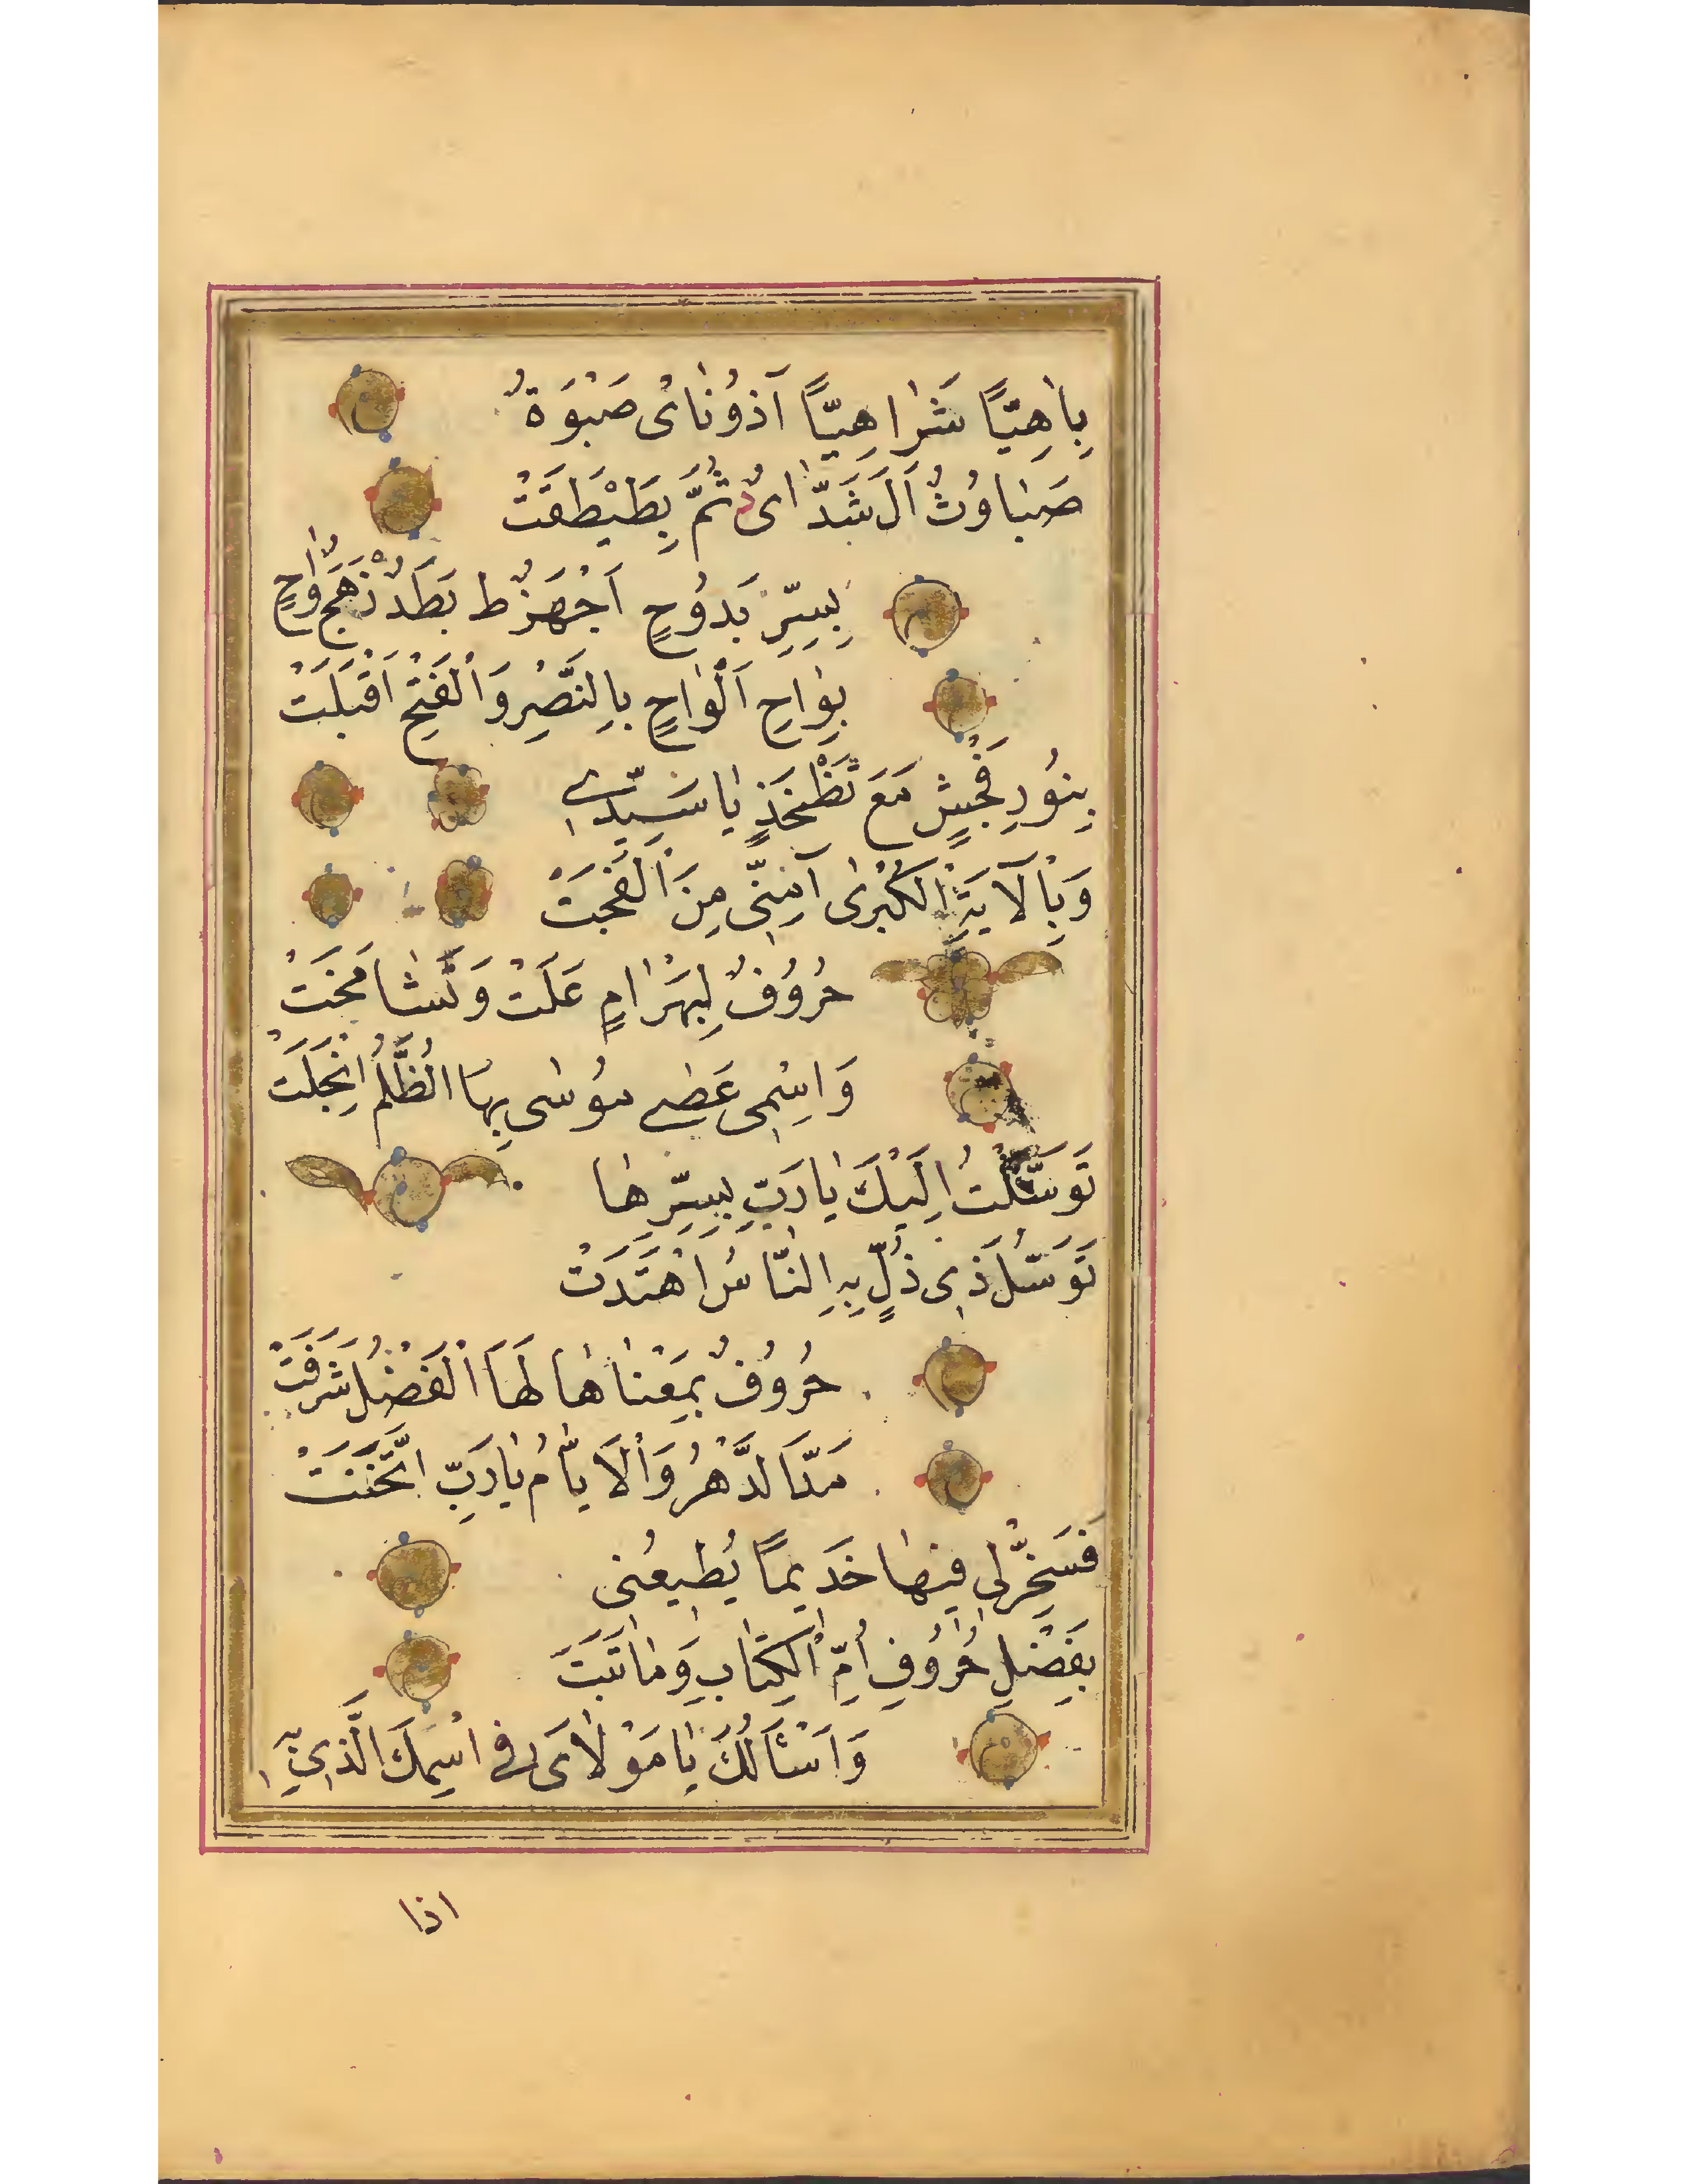 بِاهِيًّا شَرَاهِيًّا آذُونَاىُ صَبْوَةٌ
صَبَاوُثٌ اَلَ شَدَّاىٌ ثُمَّ بِطَيْطَغَتْ
بِسِرِّ بَدُوحٍ اَجْهَزُط بَطَدٌ زَهَجٌ وَاحٍ
بِوَاحِ اَلْوَاحٍ بِالنَّصْرِ وَالْفَتْحِ اَقْبَلَتْ
بِنُورِ فَجِشٍ مَعَ ثَظْخَذٍ يَا سَيِّدِى
وَبِالْآيَةِ الْكُبْرَى آمِنِّى مِنَ الْفَجَتْ
حُرُوفٌ لِبَهْرَامٍ عَلَتْ وَتَشَامَخَتْ
وَاسْمِى عَصَى مُوسَى بِهَا الظُّلَمُ انْجَلَتْ
تَوَسَّلْتُ اِلَيْكَ يَا رَبِّ بِسِرِّهَا
تَوَسُّلَ ذِى ذُلٍّ بِهِ النَّاسُ اهْتَدَتْ
حُرُوفٌ بِمَعْنَاهَا لَهَا الْفَضْلُ شَرَفَتْ
مَدَّ الدَّهْرُ وَالْاَيَّامُ يَا رَبِّ انْحَنَتْ
فَسَخِّرْلِى فِيهَا خَدِيمًا يُطِيعُنِى
بِفَضْلِ حُرُوفِ اُمِّ الْكِتَابِ وَمَا تَبَتَ
وَاَسْئَالُكَ يَا مَوْلَاىَ فِى اسْمِكَ الَّذِى
اذا